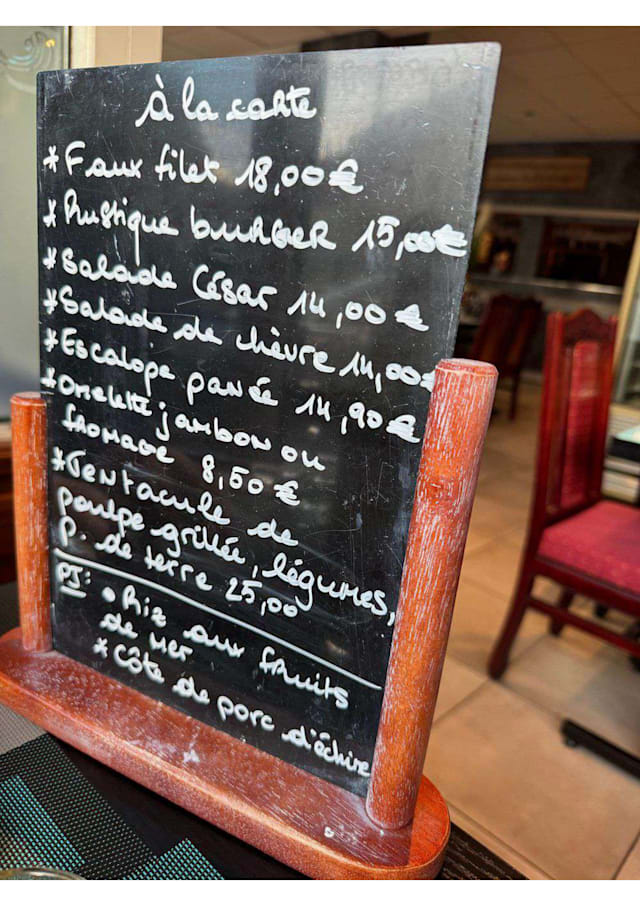 à la carte
* Faux filet 18,00€
* Rustique burger 15,00€
* Salade César 14,00€
* Salade de chèvre 14,00€
* Escalope panée 14,90€
* Omelette jambon ou
fromage 8,50€
* Tentacule de
poulpe grillée, légumes,
P. de terre 25,00
PJ: • Riz aux fruits
de mer
* Côte de porc d'échine